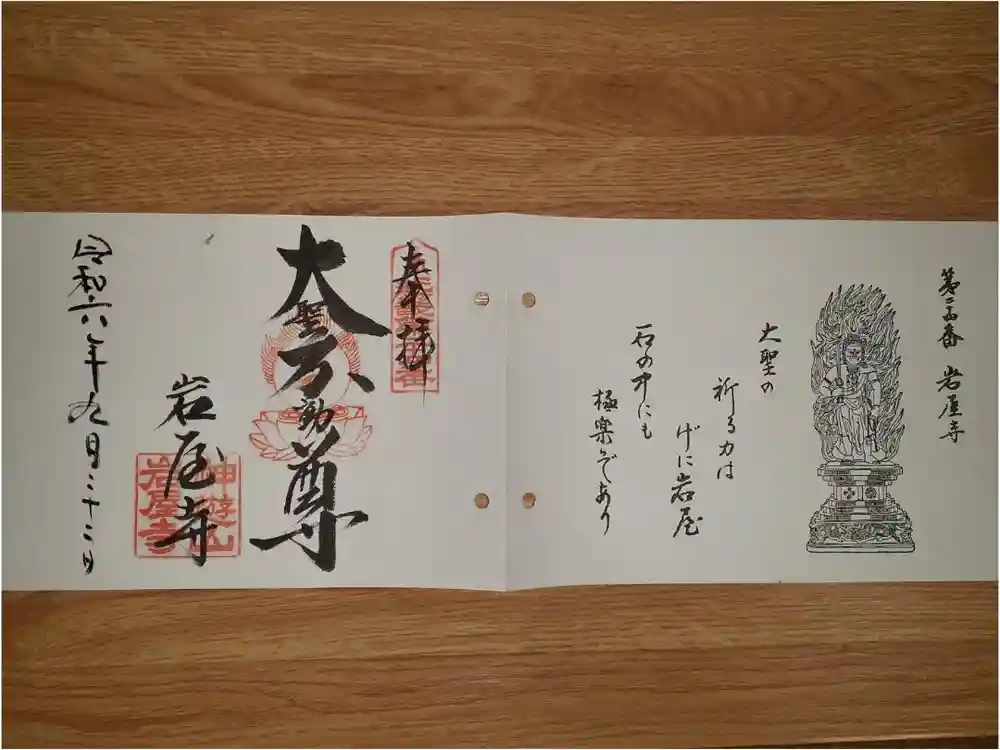 第二十四番 岩屋寺
大聖の
祈る力は
げに岩屋
石の中にも
極楽ぞあり
奉拝
大聖不動尊
岩屋寺
神遊山
岩屋寺
令和六年九月二十二日